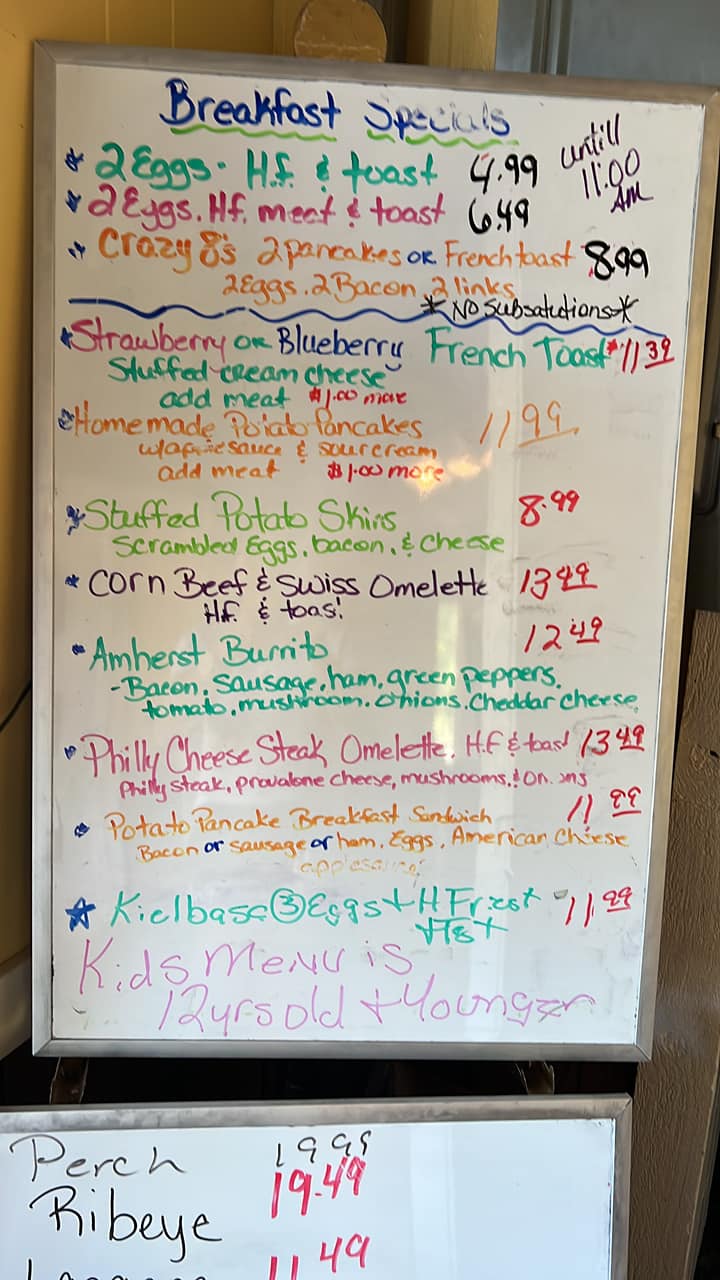 Breakfast Specials
untill 11:00 AM
* 2 Eggs. H.f. & toast 4.99
* 2 Eggs. Hf. meat & toast 6.49
* Crazy 8's 2 pancakes or French toast 8.99
2 Eggs. 2 Bacon 2 links
* No Subsatutions *
* Strawberry or Blueberry French Toast $11.39
Stuffed cream cheese
add meat $1.00 more
Homemade Potato Pancakes 11.99
w/applesauce & sour cream
add meat $1.00 more
* Stuffed Potato Skins 8.99
Scrambled Eggs, bacon, & cheese
* Corn Beef & Swiss Omelette 13.49
H.f. & toast
* Amherst Burrito 12.49
- Bacon, Sausage, ham, green peppers,
tomato, mushroom, onions, Cheddar cheese
* Philly Cheese Steak Omelette. H.F & toast 13.49
Philly steak, provalone cheese, mushrooms, & Onions
* Potato Pancake Breakfast Sandwich 11.99
Bacon or sausage or ham, Eggs, American Cheese
applesauce
* Kielbasa ③ Eggs + H Fries + 11.99
Kids Menu is
12 yrs old + Younger
Perch 19.99
Ribeye 19.49
11.49